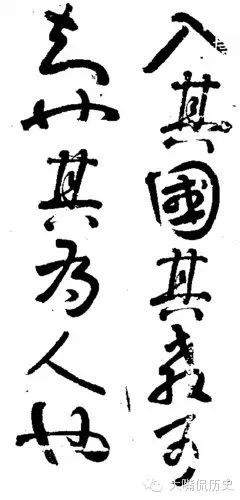 入其國其教可
知也其為人也
大嘴侃历史